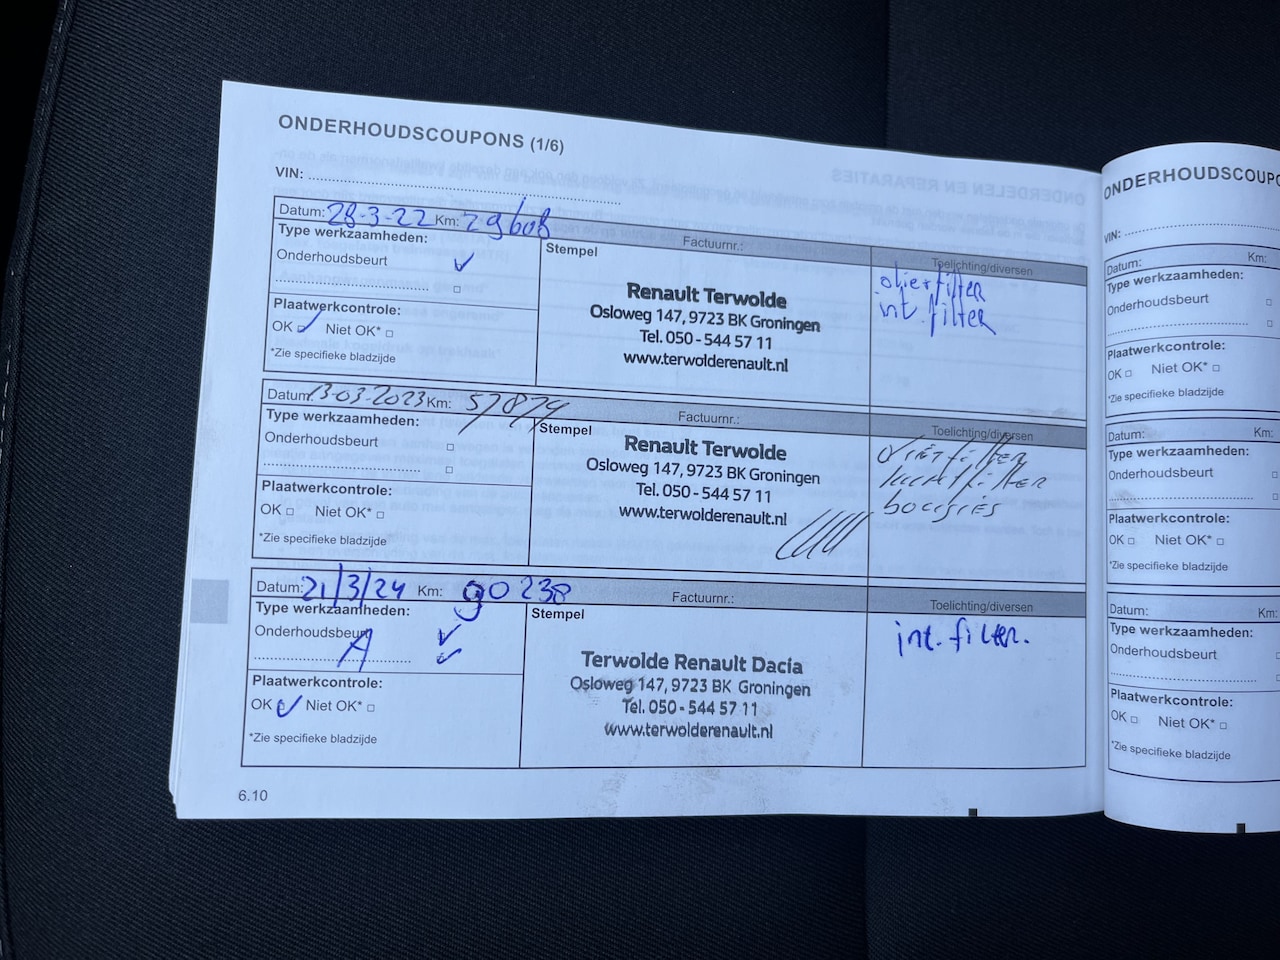 ONDERHOUDSCOUPONS (1/6)
VIN:
Datum: 28-3-22 Km: 29608 Factuurnr.:
Type werkzaamheden:
Onderhoudsbeurt
Plaatwerkcontrole:
OK Niet OK*
*Zie specifieke bladzijde
Stempel
Renault Terwolde
Osloweg 147, 9723 BK Groningen
Tel. 050 - 544 57 11
www.terwolderenault.nl
Toelichting/diversen
olie+filter
int. filter
Datum: 13-03-2023 Km: 57874 Factuurnr.:
Type werkzaamheden:
Onderhoudsbeurt
Plaatwerkcontrole:
OK Niet OK*
*Zie specifieke bladzijde
Stempel
Renault Terwolde
Osloweg 147, 9723 BK Groningen
Tel. 050 - 544 57 11
www.terwolderenault.nl
Toelichting/diversen
bougies
Datum: 21/3/24 Km: 90238 Factuurnr.:
Type werkzaamheden:
Onderhoudsbeurt
A
Plaatwerkcontrole:
OK Niet OK*
*Zie specifieke bladzijde
Stempel
Terwolde Renault Dacia
Osloweg 147, 9723 BK Groningen
Tel. 050 - 544 57 11
www.terwolderenault.nl
Toelichting/diversen
int. filter.
6.10
ONDERHOUDSCOUPO
VIN:
Datum: Km:
Type werkzaamheden:
Onderhoudsbeurt
Plaatwerkcontrole:
OK Niet OK*
*Zie specifieke bladzijde
Datum: Km:
Type werkzaamheden:
Onderhoudsbeurt
Plaatwerkcontrole:
OK Niet OK*
*Zie specifieke bladzijde
Datum: Km:
Type werkzaamheden:
Onderhoudsbeurt
Plaatwerkcontrole:
OK Niet OK*
*Zie specifieke bladzijde